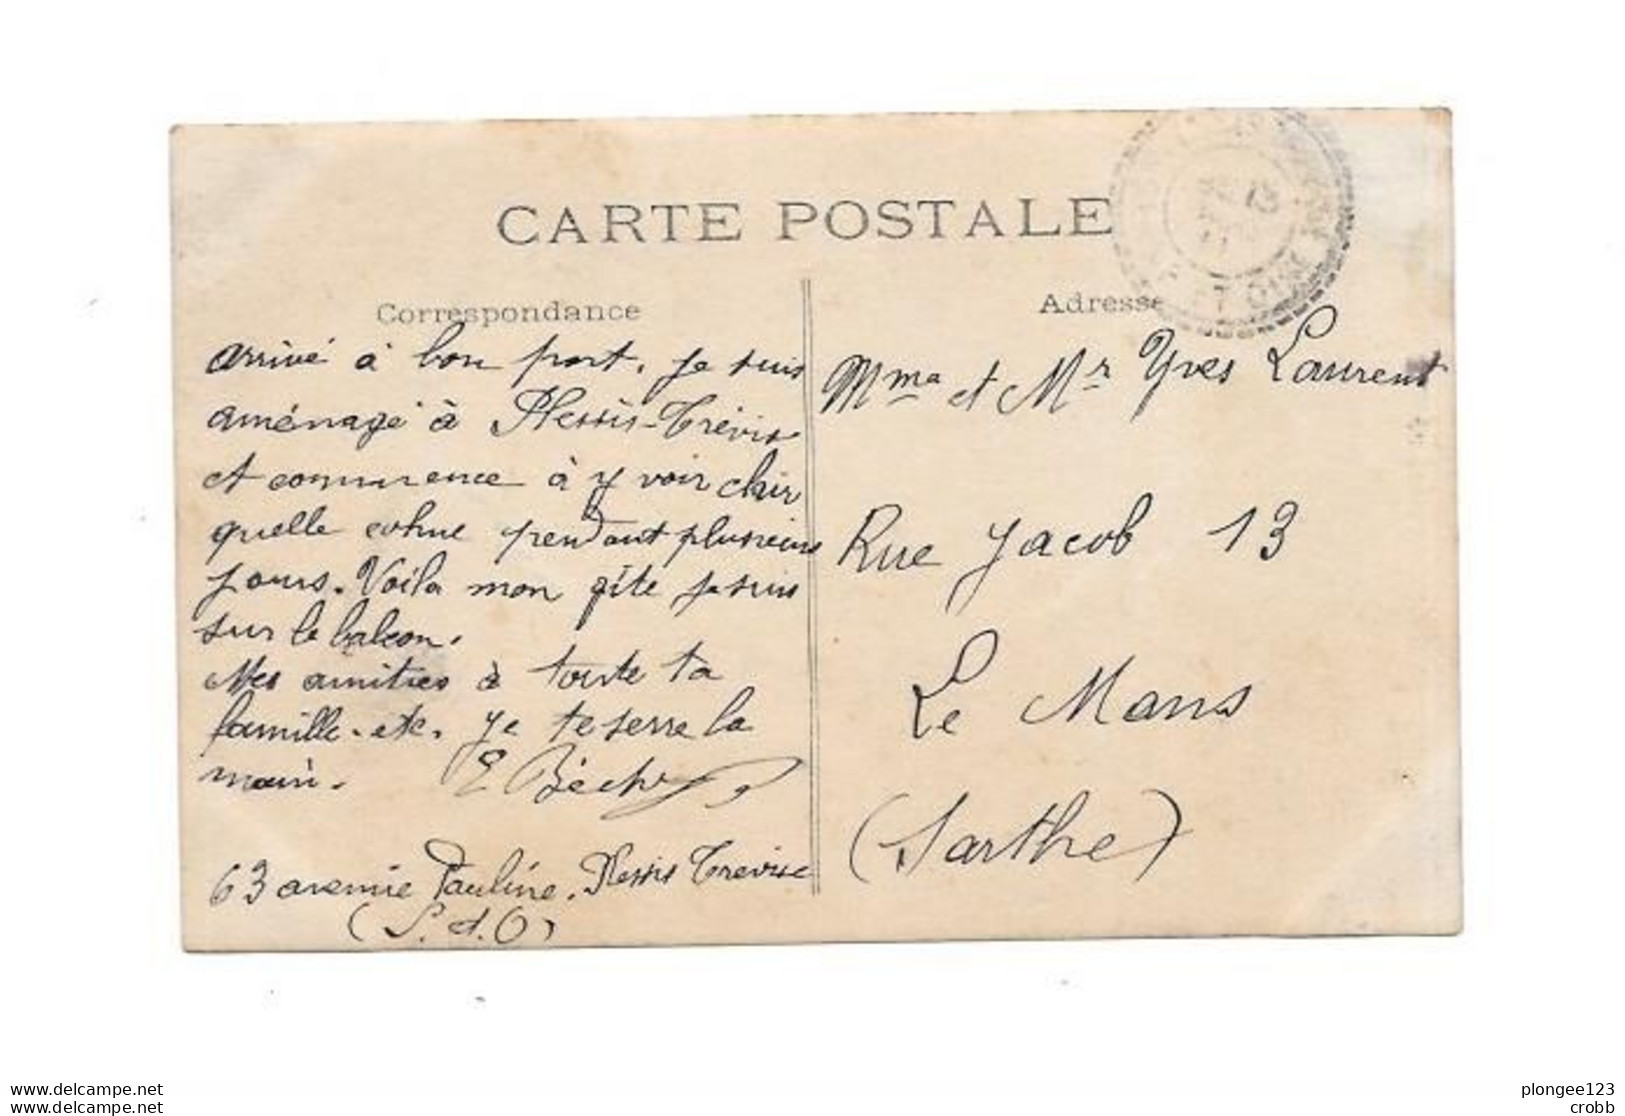 CARTE POSTALE
Correspondance
arrivé à bon port, je suis
aménagé à Plessis-Trévise
et commence à y voir clair
quelle cohue pendant plusieurs
jours. Voila mon gîte je suis
sur le balcon.
Mes amitiés à toute ta
famille. etc. je te serre la
main. E Béch
63 avenue Pauline. Plessis Trevise
(S. et. O)
Adresse
Mme et Mr Yves Laurent
Rue Jacob 13
Le Mans
(Sarthe)
www.delcampe.net
www.delcampe.net
plongee123
crobb